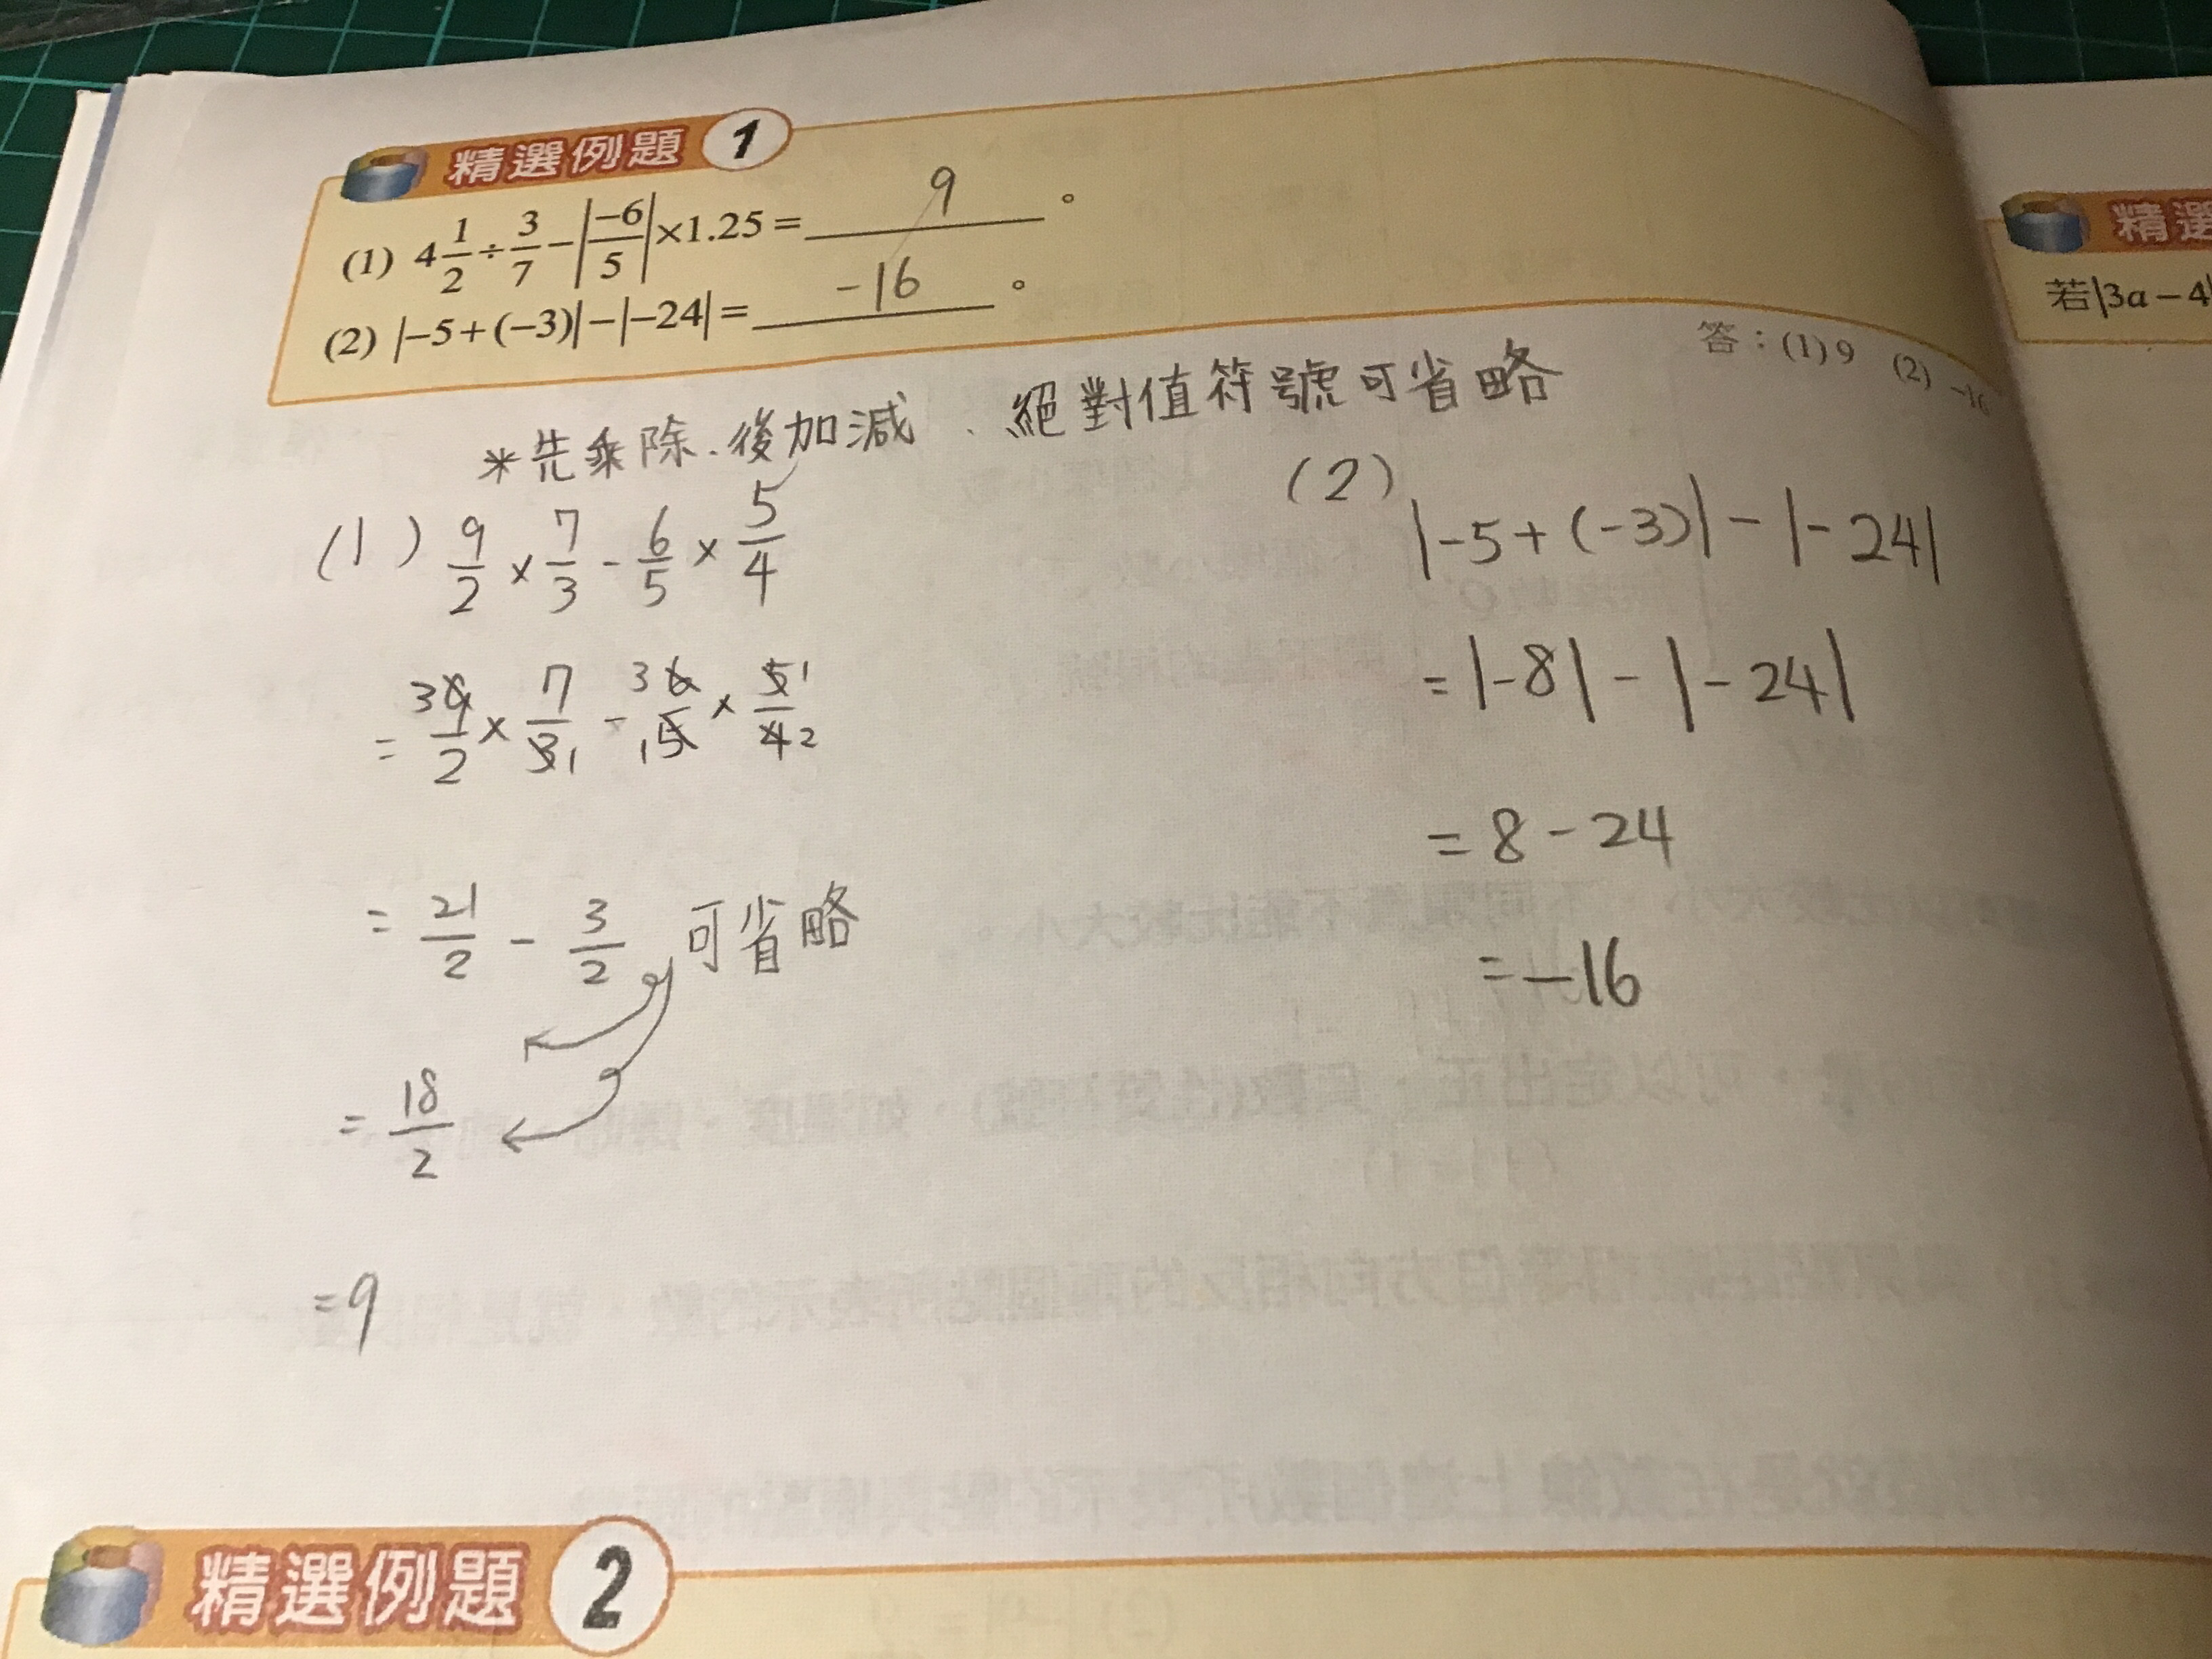 精選例題 1
(1) 4 1/2 ÷ 3/7 − |−6/5| ×1.25 = 9 。
(2) |−5+(−3)|−|−24| = -16 。
答：(1) 9 (2) −16
*先乘除.後加減、絕對值符號可省略
(1) 9/2 × 7/3 - 6/5 × 5/4
= 3 9/2 × 7/3 1 - 3 6/1 5 × 5 1/4 2
= 21/2 - 3/2 可省略
= 18/2
= 9
(2) |-5+(-3)|-|-24|
= |-8|-|-24|
= 8-24
= -16
精選例題 2
精選
若|3a−4|